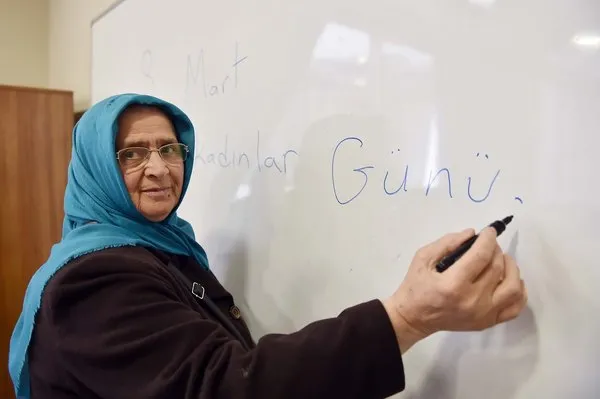 8 Mart
kadınlar Günü.